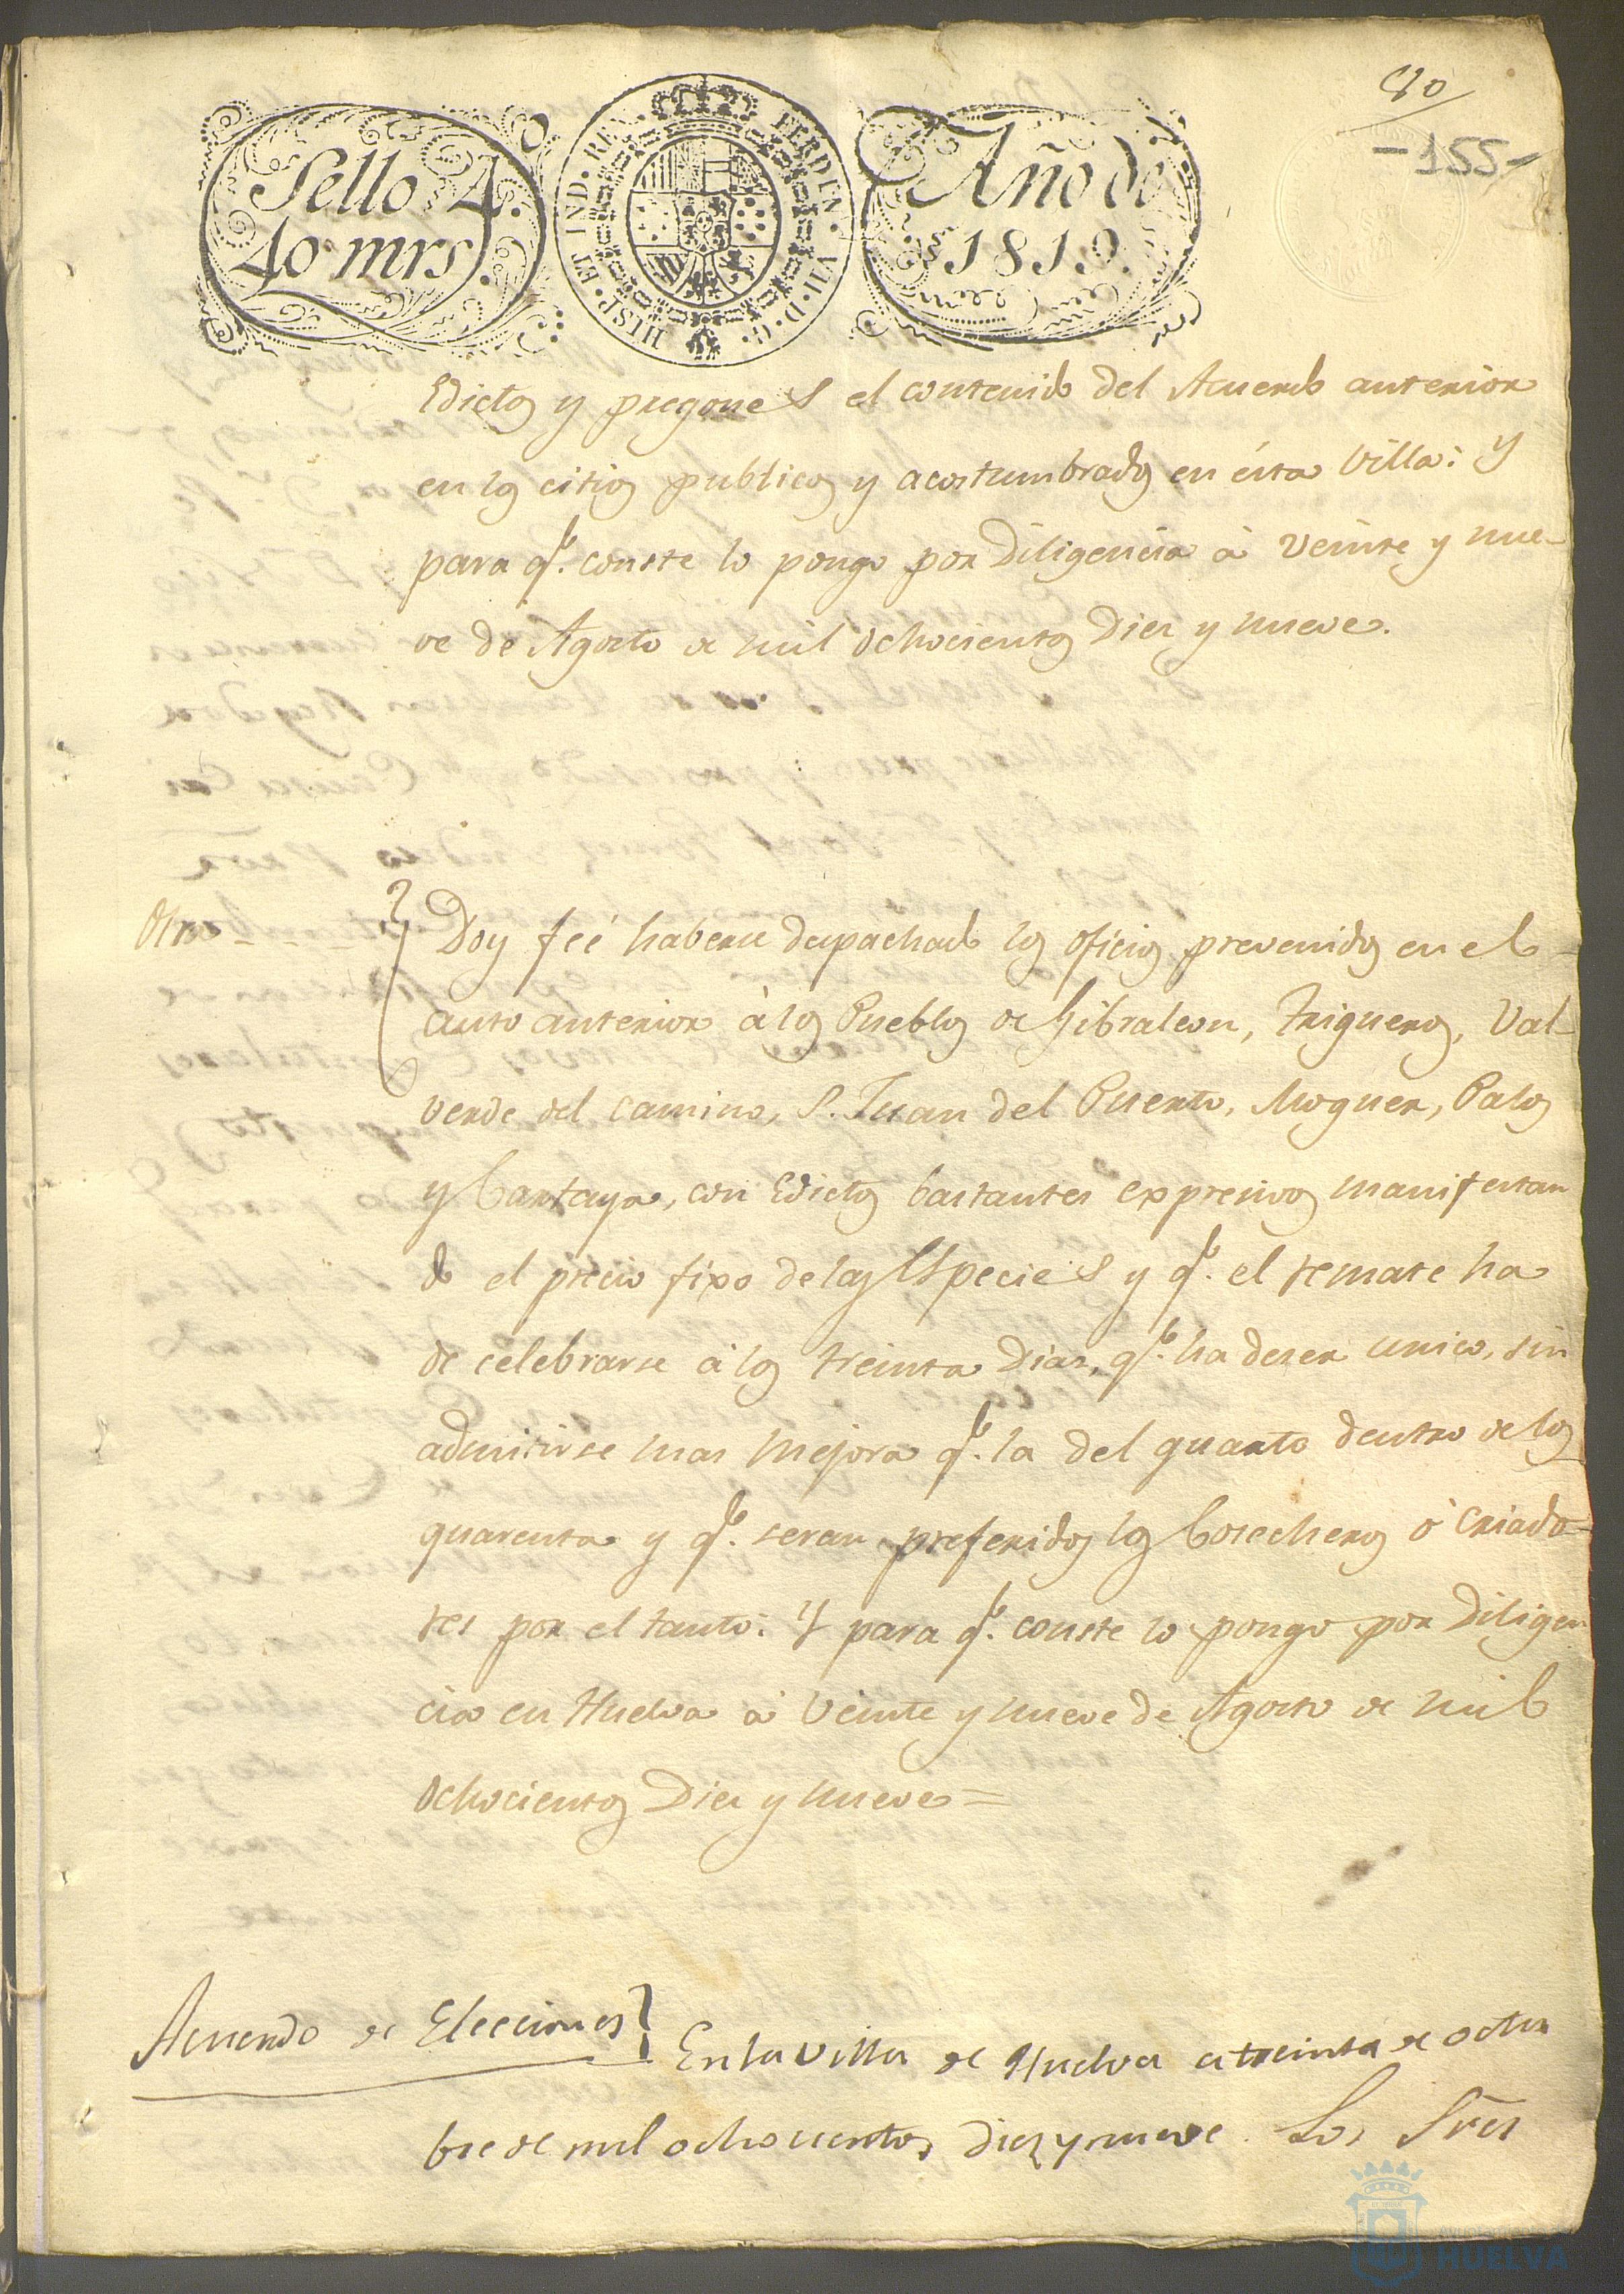 90
-155-
Sello 4.º
40 mrs.
HISP. ET IND. REX. FERDIN. VII. D. G.
Año de
1819.
Edictos y pregones el contenido del Acuerdo anterior
en los citios publicos y acostumbrados en ésta Villa: y
para q.e conste lo pongo por Diligencia à veinte y nue-
ve de Agosto de mil ochocientos Diez y nueve.
Otra - - - -
Doy feé haberse despachado los oficios prevenidos en el
auto anterior à los Pueblos de Gibraleon, Trigueros, Val-
verde del camino, S. Juan del Puerto, Moguer, Palos
y Cartaya, con Edictos bastantes expresivos manifestan
do el precio fixo de las Especies y q.e el remate ha
de celebrarse à los treinta Dias, q.e ha de ser unico, sin
admitirse mas mejora q.e la del quarto dentro de los
quarenta y q.e seran preferidos los Cosecheros ò criado-
res por el tanto: Y para q.e conste lo pongo por Diligen
cia en Huelva à veinte y nueve de Agosto de mil
ochocientos Diez y nueve=
Acuerdo de Elecciones
En la villa de Huelva a treinta de octu
bre de mil ochocientos diez y nueve. Los Sres
HUELVA